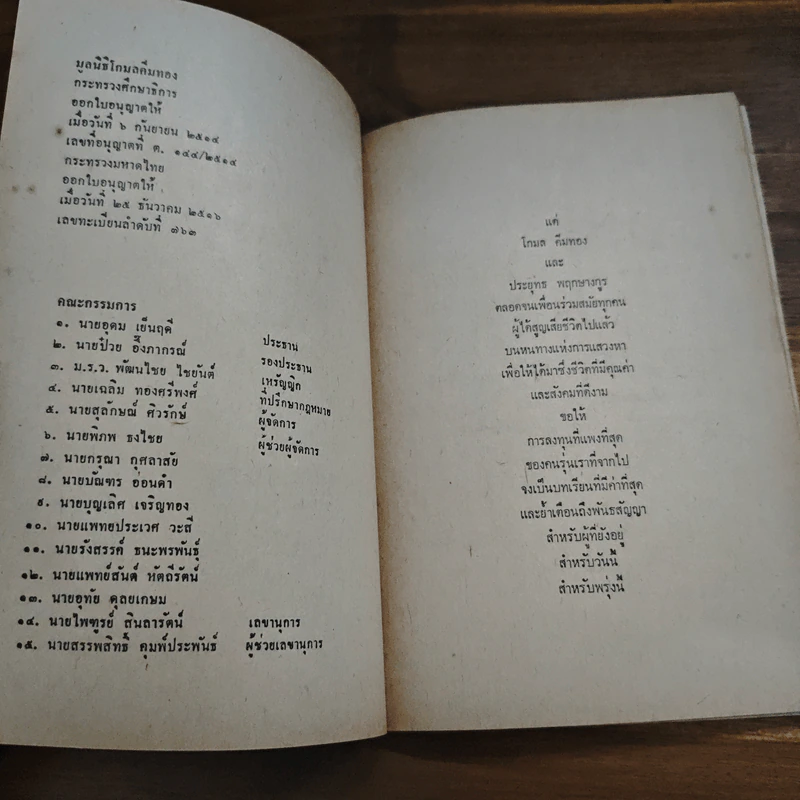 มูลนิธิโกมลคีมทอง
กระทรวงศึกษาธิการ
ออกใบอนุญาตให้
เมื่อวันที่ ๖ กันยายน ๒๕๑๔
เลขที่อนุญาตที่ ต. ๑๔๔/๒๕๑๔
กระทรวงมหาดไทย
ออกใบอนุญาตให้
เมื่อวันที่ ๒๕ ธันวาคม ๒๕๑๖
เลขทะเบียนลำดับที่ ๗๖๓
คณะกรรมการ
๑. นายอุดม เย็นฤดี ประธาน
๒. นายป๋วย อึ๊งภากรณ์ รองประธาน
๓. ม.ร.ว. พัฒนไชย ไชยันต์ เหรัญญิก
๔. นายเฉลิม ทองศรีพงศ์ ที่ปรึกษากฎหมาย
๕. นายสุลักษณ์ ศิวรักษ์ ผู้จัดการ
๖. นายพิภพ ธงไชย ผู้ช่วยผู้จัดการ
๗. นายกรุณา กุศลาสัย
๘. นายบัณฑร อ่อนดำ
๙. นายบุญเลิศ เจริญทอง
๑๐. นายแพทยประเวศ วะสี
๑๑. นายรังสรรค์ ธนะพรพันธุ์
๑๒. นายแพทย์สันต์ หัตถีรัตน์
๑๓. นายอุทัย ดุลยเกษม
๑๔. นายไพฑูรย์ สินลารัตน์ เลขานุการ
๑๕. นายสรรพสิทธิ์ คุมพ์ประพันธ์ ผู้ช่วยเลขานุการ
แด่
โกมล คีมทอง
และ
ประยุทธ พฤกษางกูร
ตลอดจนเพื่อนร่วมสมัยทุกคน
ผู้ได้สูญเสียชีวิตไปแล้ว
บนหนทางแห่งการแสวงหา
เพื่อให้ได้มาซึ่งชีวิตที่มีคุณค่า
และสังคมที่ดีงาม
ขอให้
การลงทุนที่แพงที่สุด
ของคนรุ่นเราที่จากไป
จงเป็นบทเรียนที่มีค่าที่สุด
และย้ำเตือนถึงพันธสัญญา
สำหรับผู้ที่ยังอยู่
สำหรับวันนี้
สำหรับพรุ่งนี้